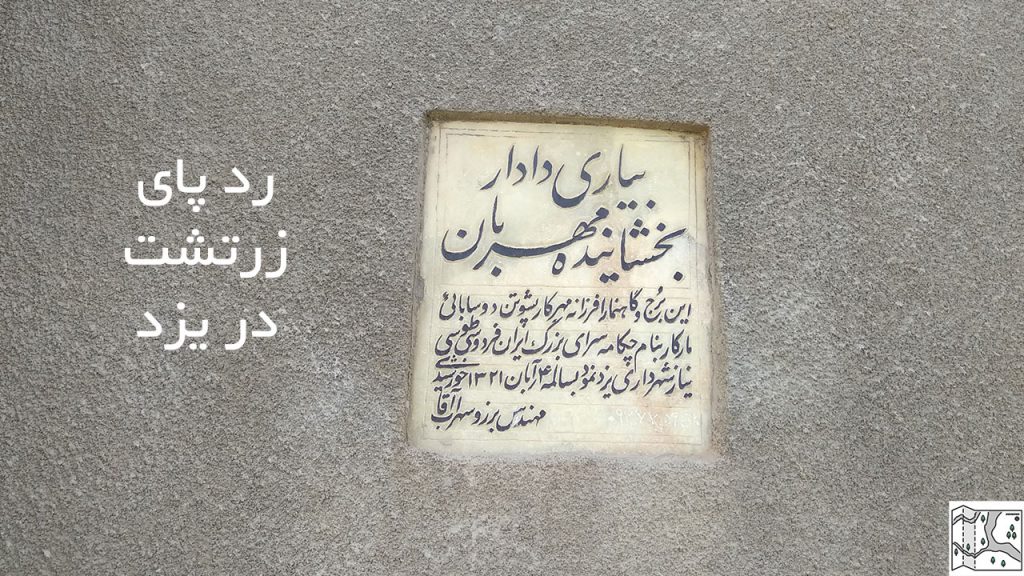 رد پای
زرتشت
در یزد
بیاری دادار
بخشاینده مهربان
این برج و گاهنما را فرزانه مهرکار پشوتن دوسابائی
مارکار بنام چکامه سرای بزرگ ایران فردوسی طوسی
نیاز شهرداری یزد نمود بسالمه ۴ آبان ۱۳۲۱ خورشیدی
مهندس برزو سهراب آقا